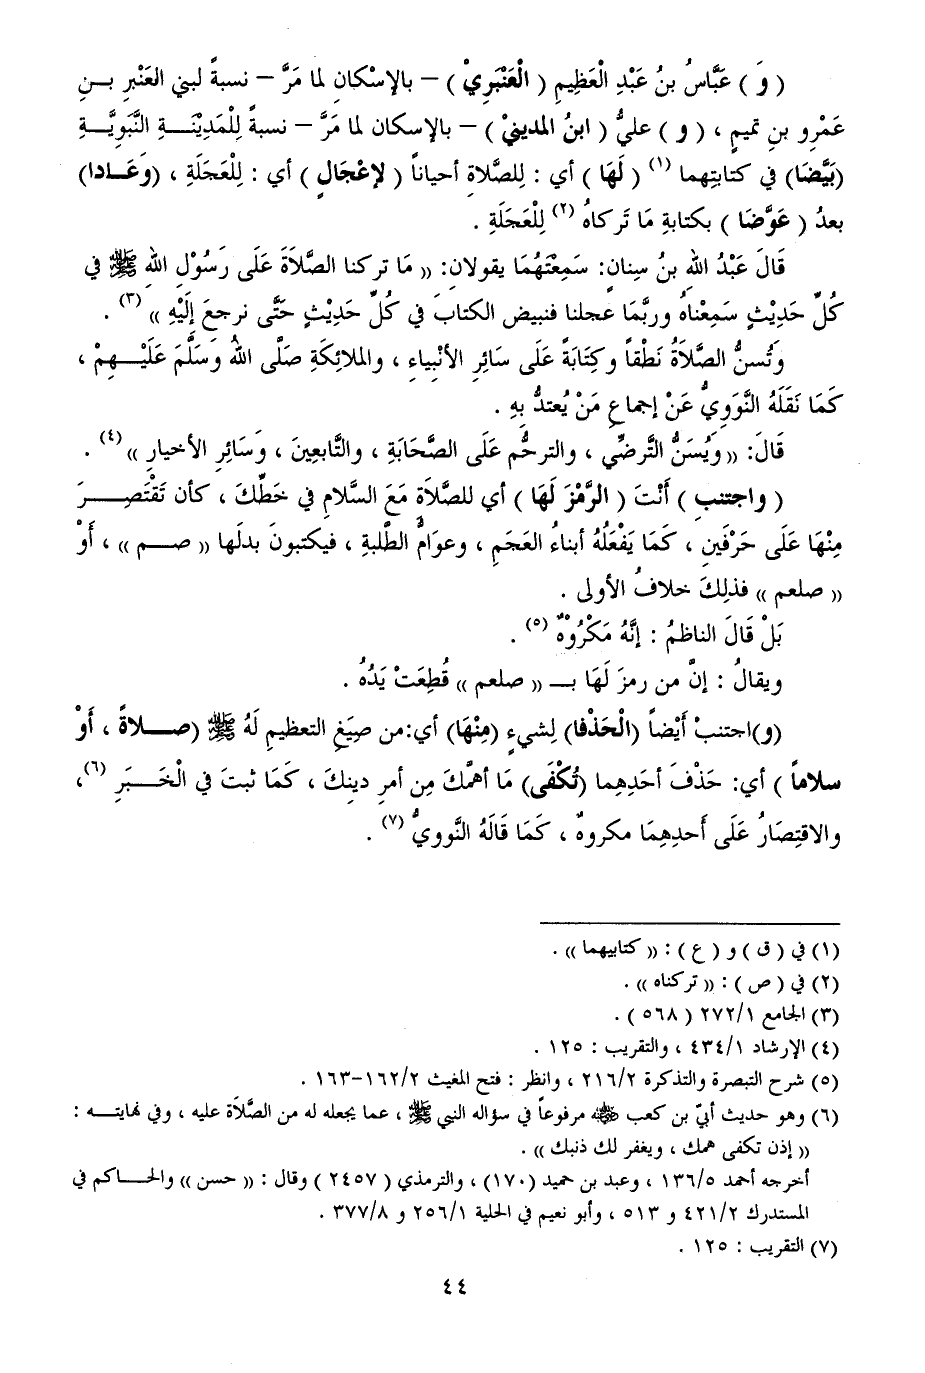 ( وَ ) عَبَّاسُ بنُ عَبْدِ الْعَظِيمِ ( الْعَنْبَرِيْ ) – بالإسْكان لما مَرَّ – نسبةً لبني العَنْبرِ بــنِ
عَمْرِو بنِ تميمٍ ، ( و ) عليُّ ( ابنُ المدينيْ ) – بالإسكان لما مَرَّ – نسبةً لِلْمَدِيْنَــةِ النَّبَوِيَّــةِ
(بَيَّضَا) في كتابتِهما (١) ( لَهَا ) أي : لِلصَّلاةِ أحياناً ( لإعْجَالٍ ) أي : لِلْعَجَلَةِ ، (وَعَــادا)
بعدُ ( عَوَّضَا ) بكتابةِ مَا تَركاهُ (٢) لِلْعَجَلَةِ .
قَالَ عَبْدُ اللهِ بنُ سِنانٍ: سَمِعْتَهُمَا يقولان: « مَا تركنا الصَّلاَةَ عَلَى رَسُوْلِ اللهِ ﷺ في
كُلِّ حَدِيْثٍ سَمِعْناهُ وربَّمَا عجلنا فنبيض الكتابَ في كُلِّ حَدِيْثٍ حَتَّى نرجعَ إِلَيْهِ » (٣) .
وَتُسنُّ الصَّلاَةُ نَطْقاً وكِتَابَةً عَلَى سَائِرِ الأنْبياءِ ، والملائِكَةِ صَلَّى اللهُ وَسَلَّمَ عَلَيْــهِمْ ،
كَمَا نَقَلَهُ النَّوَوِيُّ عَنْ إجماعِ مَنْ يُعتدُّ بِهِ .
قَالَ: « وَيُسَنُّ التَّرضِّي ، والترحُّم عَلَى الصَّحَابَةِ ، والتَّابعِينَ ، وَسَائِرِ الأخيارِ » (٤) .
( واجتنبِ ) أَنْتَ ( الرَّمْزَ لَهَا ) أي للصَّلاَةِ مَعَ السَّلامِ في خَطِّكَ ، كأن تَقْتَصِــرَ
مِنْهَا عَلَى حَرْفَينِ ، كَمَا يَفْعَلُهُ أبناءُ العَجَمِ ، وعوامُّ الطَّلبةِ ، فيكتبونَ بدلَها « صــم » ، أَوْ
« صلعم » فذلِكَ خلافُ الأولى .
بَلْ قَالَ الناظمُ : إنَّهُ مَكْرُوْهٌ (٥) .
ويقالُ : إنَّ من رمزَ لَهَا بــ « صلعم » قُطِعَتْ يَدُهُ .
(و)اجتنبْ أَيْضاً (الْحَذْفا) لِشيءٍ (مِنْهَا) أي:من صِيَغِ التعظيمِ لَهُ ﷺ (صــلاةً ، أَوْ
سلاماً ) أي: حَذْفَ أحدِهِما (تُكْفَى) مَا أهمَّكَ مِن أمرِ دينِكَ ، كَمَا ثبتَ في الْخَــبَرِ (٦)،
والاقتِصَارُ عَلَى أَحدِهِمَا مكروهٌ ، كَمَا قَالَهُ النَّوويُّ (٧) .
(١) في ( ق ) و ( ع ) : « كتابيهما » .
(٢) في ( ص ) : « تركناه » .
(٣) الجامع ٢٧٢/١ ( ٥٦٨ ) .
(٤) الإرشاد ٤٣٤/١ ، والتقريب : ١٢٥ .
(٥) شرح التبصرة والتذكرة ٢١٦/٢ ، وانظر : فتح المغيث ١٦٢/٢-١٦٣ .
(٦) وهو حديث أبيّ بن كعب ﷺ مرفوعاً في سؤاله النبي ﷺ ، عما يجعله له من الصَّلاَة عليه ، وفي نهايتــه :
« إذن تكفى همك ، ويغفر لك ذنبك » .
أخرجه أحمد ١٣٦/٥ ، وعبد بن حميد (١٧٠) ، والترمذي ( ٢٤٥٧ ) وقال : « حسن » والحــاكم في
المستدرك ٤٢١/٢ و ٥١٣ ، وأبو نعيم في الحلية ٢٥٦/١ و ٣٧٧/٨ .
(٧) التقريب : ١٢٥ .
٤٤